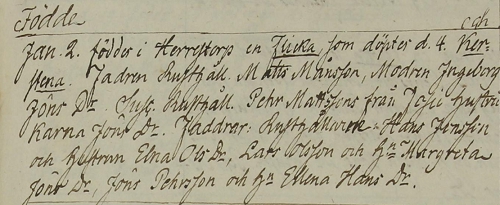 Födde
Jan. 2. föddes i Herrestorp en Flicka som döptes d. 4. Ker-
stena. Fadren Rusthåll. Matts Månsson, Modren Ingeborg
Jöns Dr. Susc. Rusthåll. Pehr Mattssons från hustru
Karna Jöns Dr. Faddrar: Rusthållarne Hans Jensson
och hustrun Elna Ols Dr, Lars Olsson och Hn Margreta
Jöns Dr, Jöns Pehrsson och Hn Ellena Hans Dr.